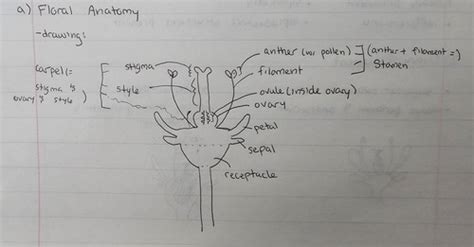 a) Floral Anatomy
-drawing:
carpel(=
stigma &
ovary & style )
stigma
style
anther (w/ pollen)
filament
(anther + filament =)
Stamen
ovule (inside ovary)
ovary
petal
sepal
receptacle